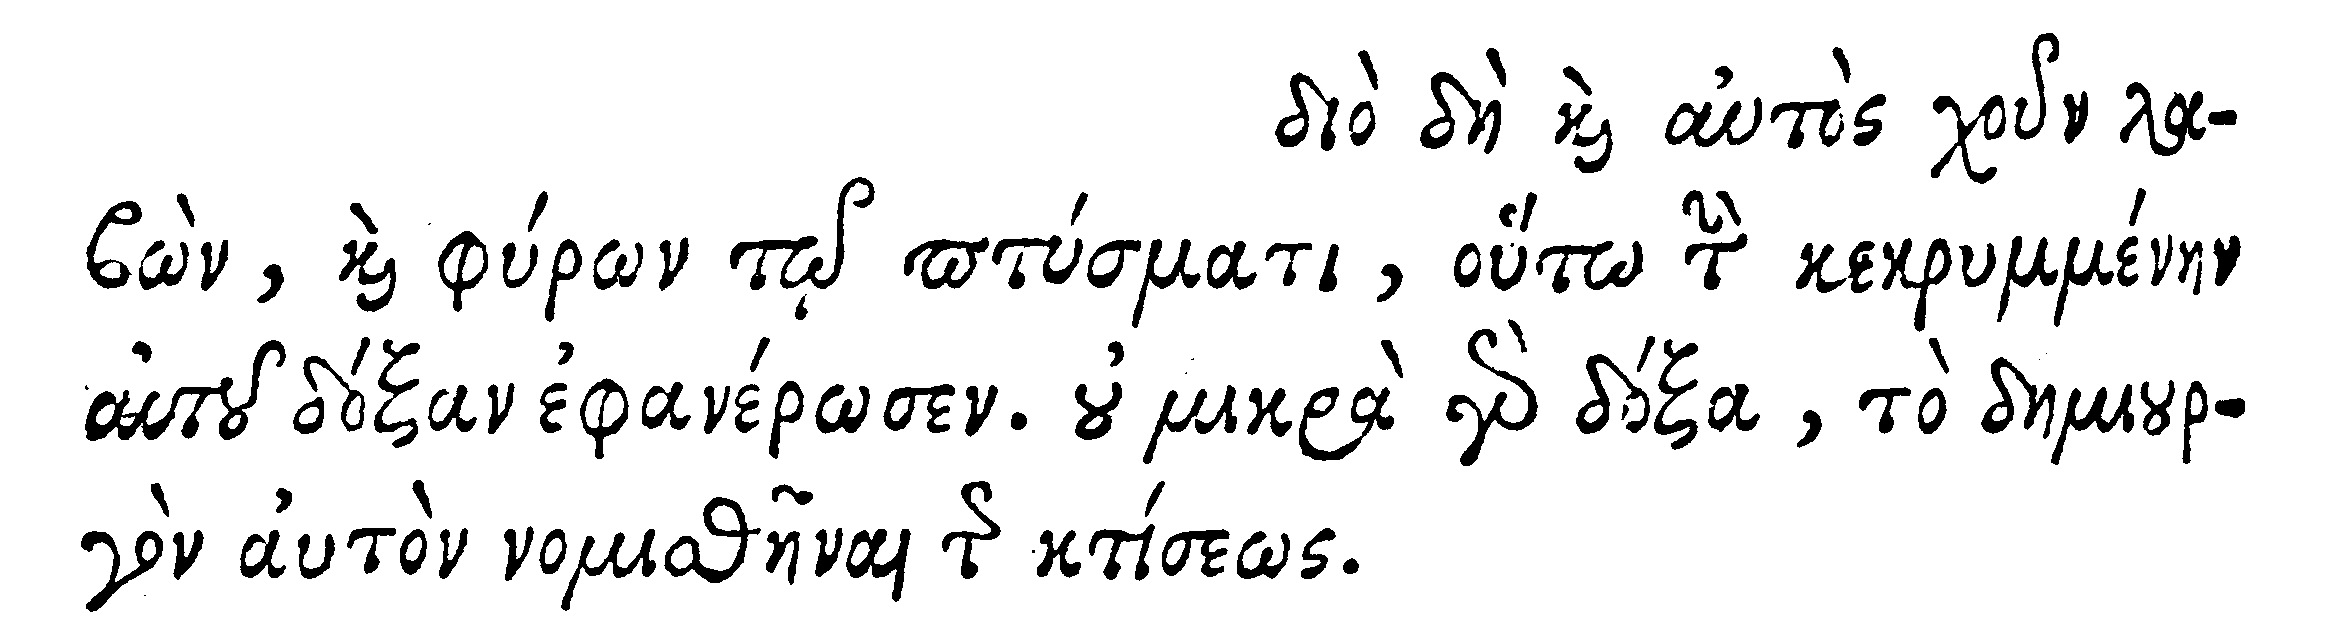 διὸ δὴ καὶ αὐτὸς χοῦν λα-
βὼν, καὶ φύρων τῷ πτύσματι, οὕτω τὴν κεκρυμμένην
αὐτοῦ δόξαν ἐφανέρωσεν. οὐ μικρὰ γὰρ δόξα, τὸ δημιουρ-
γὸν αὐτὸν νομισθῆναι τῆς κτίσεως.